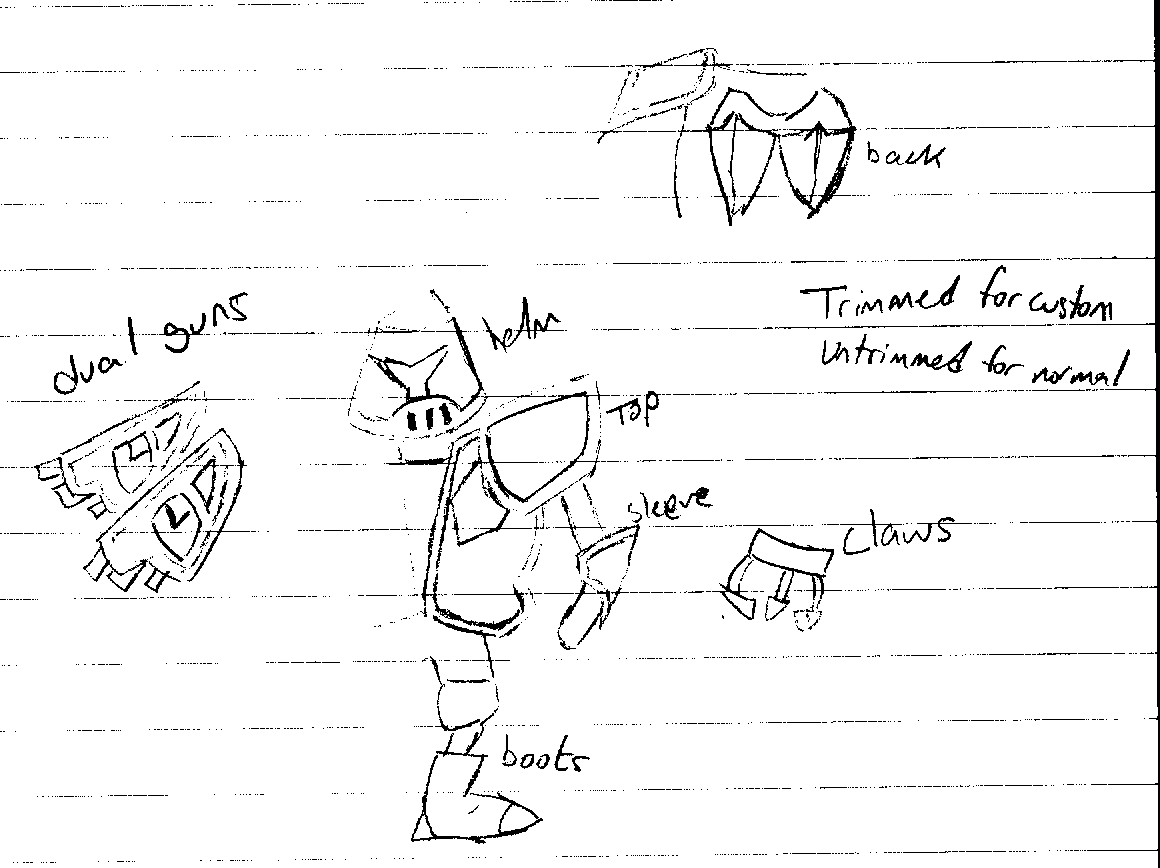 back
Trimmed for custom
Untrimmed for normal
dual guns
helm
Top
sleeve
claws
boots